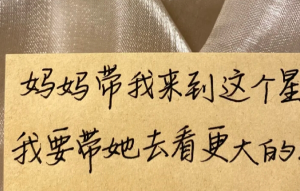 妈妈带我来到这个星
我要带她去看更大的